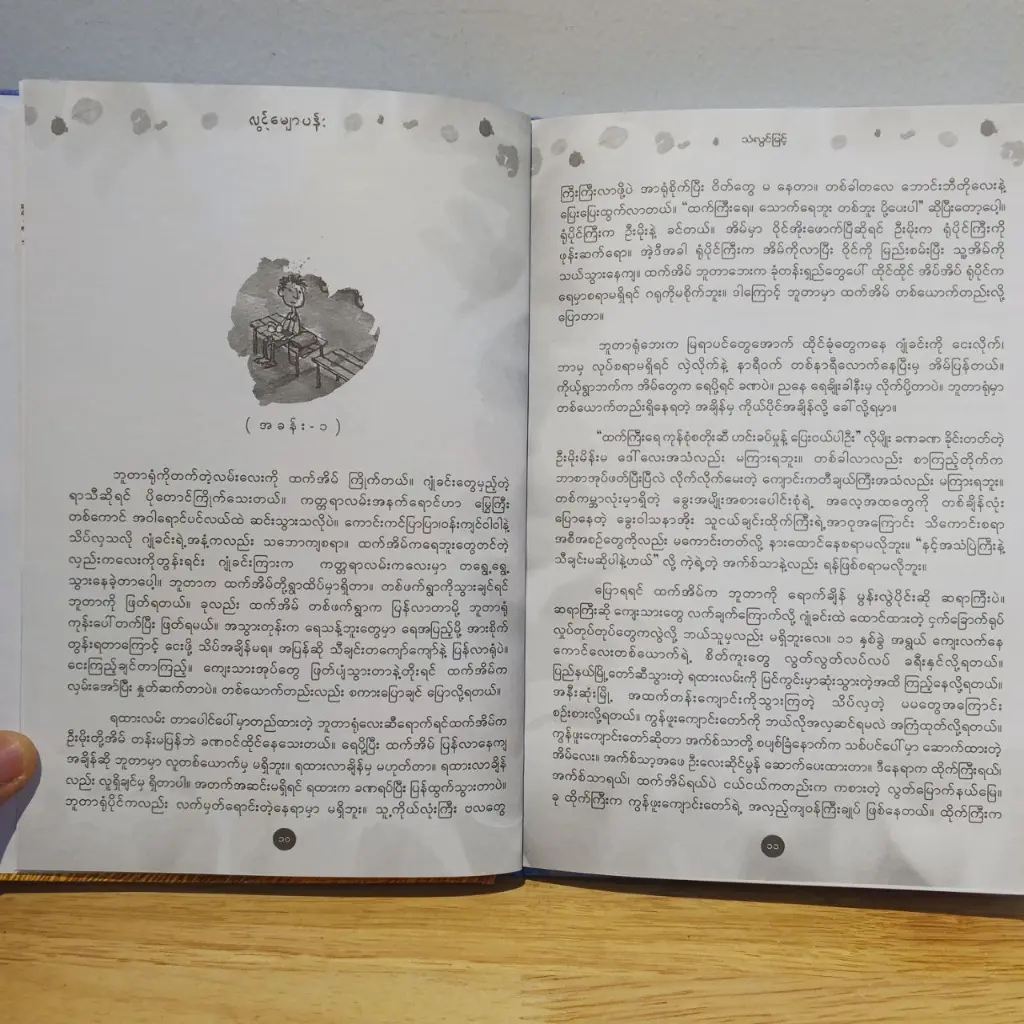 လွင့်မျောပန်း
(အခန်း-၁)
ဘူတာရုံကိုတက်တဲ့လမ်းလေးကို ထက်အိမ် ကြိုက်တယ်။ ဂျုံခင်းတွေမှည့်တဲ့
ရာသီဆိုရင် ပိုတောင်ကြိုက်သေးတယ်။ ကတ္တရာလမ်းအနက်ရောင်ဟာ မြွေကြီး
တစ်ကောင် အဝါရောင်ပင်လယ်ထဲ ဆင်းသွားသလိုပဲ။ ကောင်းကင်ပြာပြာ၊ဝန်းကျင်ဝါဝါနဲ့
သိပ်လှသလို ဂျုံခင်းရဲ့အနံ့ကလည်း သဘောကျစရာ။ ထက်အိမ်ကရေဘူးတွေတင်တဲ့
လှည်းကလေးကိုတွန်းရင်း ဂျုံခင်းကြားက ကတ္တရာလမ်းကလေးမှာ တရွေ့ရွေ့
သွားနေခဲ့တာပေါ့။ ဘူတာက ထက်အိမ်တို့ရွာထိပ်မှာရှိတာ။ တစ်ဖက်ရွာကိုသွားချင်ရင်
ဘူတာကို ဖြတ်ရတယ်။ ခုလည်း ထက်အိမ် တစ်ဖက်ရွာက ပြန်လာတာမို့ ဘူတာရုံ
ကုန်းပေါ်တက်ပြီး ဖြတ်ရမယ်။ အသွားတုန်းက ရေသန့်ဘူးတွေမှာ ရေအပြည့်မို့ အားစိုက်
တွန်းရတာကြောင့် ငေးဖို့ သိပ်အချိန်မရ။ အပြန်ဆို သီချင်းတကျော်ကျော်နဲ့ ပြန်လာရုံပဲ။
ငေးကြည့်ချင်တာကြည့်။ ကျေးသားအုပ်တွေ ဖြတ်ပျံသွားတာနဲ့တိုးရင် ထက်အိမ်က
လှမ်းအော်ပြီး နှုတ်ဆက်တာပဲ။ တစ်ယောက်တည်းလည်း စကားပြောချင် ပြောလို့ရတယ်။
ရထားလမ်း တာပေါင်ပေါ်မှာတည်ထားတဲ့ ဘူတာရုံလေးဆီရောက်ရင်ထက်အိမ်က
ဦးမိုးတို့အိမ် တန်းမပြန်ဘဲ ခဏဝင်ထိုင်နေသေးတယ်။ ရေပို့ပြီး ထက်အိမ် ပြန်လာနေကျ
အချိန်ဆို ဘူတာမှာ လူတစ်ယောက်မှ မရှိဘူး။ ရထားလာချိန်မှ မဟုတ်တာ။ ရထားလာချိန်
လည်း လူရှိချင်မှ ရှိတာပါ။ အတက်အဆင်းမရှိရင် ရထားက ခဏရပ်ပြီး ပြန်ထွက်သွားတာပဲ။
ဘူတာရုံပိုင်ကလည်း လက်မှတ်ရောင်းတဲ့နေရာမှာ မရှိဘူး။ သူ့ကိုယ်လုံးကြီး ဗလတွေ
၁၀
သံလွင်မြင့်
ကြီးကြီးလာဖို့ပဲ အာရုံစိုက်ပြီး ဝိတ်တွေ မ နေတာ။ တစ်ခါတလေ ဘောင်းဘီတိုလေးနဲ့
ပြေးပြေးထွက်လာတယ်။ "ထက်ကြီးရေ။ သောက်ရေဘူး တစ်ဘူး ပို့ပေးပါ" ဆိုပြီးတော့ပေါ့။
ရုံပိုင်ကြီးက ဦးမိုးနဲ့ ခင်တယ်။ အိမ်မှာ ဝိုင်အိုးဖောက်ပြီဆိုရင် ဦးမိုးက ရုံပိုင်ကြီးကို
ဖုန်းဆက်ရော။ အဲ့ဒီအခါ ရုံပိုင်ကြီးက အိမ်ကိုလာပြီး ဝိုင်ကို မြည်းစမ်းပြီး သူ့အိမ်ကို
သယ်သွားနေကျ။ ထက်အိမ် ဘူတာဘေးက ခုံတန်းရှည်တွေပေါ် ထိုင်ထိုင် အိပ်အိပ် ရုံပိုင်က
ရေမှာစရာမရှိရင် ဂရုကိုမစိုက်ဘူး။ ဒါကြောင့် ဘူတာမှာ ထက်အိမ် တစ်ယောက်တည်းလို့
ပြောတာ။
ဘူတာရုံဘေးက မြရာပင်တွေအောက် ထိုင်ခုံတွေကနေ ဂျုံခင်းကို ငေးလိုက်၊
ဘာမှ လုပ်စရာမရှိရင် လှဲလိုက်နဲ့ နာရီဝက် တစ်နာရီလောက်နေပြီးမှ အိမ်ပြန်တယ်။
ကိုယ့်ရွာဘက်က အိမ်တွေက ရေပို့ရင် ခဏပဲ။ ညနေ ရေချိုးခါနီးမှ လိုက်ပို့တာပဲ။ ဘူတာရုံမှာ
တစ်ယောက်တည်းရှိနေရတဲ့ အချိန်မှ ကိုယ်ပိုင်အချိန်လို့ ခေါ်လို့ရမှာ။
"ထက်ကြီးရေ ကုန်စုံစတိုးဆီ ဟင်းခပ်မှုန့် ပြေးဝယ်ပါဦး" လို့မျိုး ခဏခဏ ခိုင်းတတ်တဲ့
ဦးမိုးမိန်းမ ဒေါ်လေးအသံလည်း မကြားရဘူး။ တစ်ခါလာလည်း စာကြည့်တိုက်က
ဘာစာအုပ်ဖတ်ပြီးပြီလဲ လိုက်လိုက်မေးတဲ့ ကျောင်းကတီချယ်ကြီးအသံလည်း မကြားရဘူး။
တစ်ကမ္ဘာလုံးမှာရှိတဲ့ ခွေးအမျိုးအစားပေါင်းစုံရဲ့ အလေ့အထတွေကို တစ်ချိန်လုံး
ပြောနေတဲ့ ခွေးဝါသနာအိုး သူငယ်ချင်းထိုက်ကြီးရဲ့အာဝုအကြောင်း သိကောင်းစရာ
အစီအစဉ်တွေကိုလည်း မကောင်းတတ်လို့ နားထောင်နေစရာမလိုဘူး။ "နင့်အသံပြဲကြီးနဲ့
သီချင်းမဆိုပါနဲ့ဟယ်" လို့ ကဲ့ရဲ့တဲ့ အက်စ်သာနဲ့လည်း ရန်ဖြစ်စရာမလိုဘူး။
ပြောရရင် ထက်အိမ်က ဘူတာကို ရောက်ချိန် မွန်းလွဲပိုင်းဆို ဆရာကြီးပဲ။
ဆရာကြီးဆို ကျေးသားတွေ လက်ချက်ကြောက်လို့ ဂျုံခင်းထဲ ထောင်ထားတဲ့ ငှက်ခြောက်ရုပ်
လှုပ်တုပ်တုပ်တွေကလွဲလို့ ဘယ်သူမှလည်း မရှိဘူးလေ။ ၁၁ နှစ်ခွဲ အရွယ် ကျေးလက်နေ
ကောင်လေးတစ်ယောက်ရဲ့ စိတ်ကူးတွေ လွတ်လွတ်လပ်လပ် ခရီးနှင်လို့ရတယ်။
ပြည်နယ်မြို့တော်ဆီသွားတဲ့ ရထားလမ်းကို မြင်ကွင်းမှာဆုံးသွားတဲ့အထိ ကြည့်နေလို့ရတယ်။
အနီးဆုံးမြို့ အထက်တန်းကျောင်းကိုသွားကြတဲ့ သိပ်လှတဲ့ မမတွေအကြောင်း
စဉ်းစားလို့ရတယ်။ ကွန်ဖူးကျောင်းတော်ကို ဘယ်လိုအလှဆင်ရမလဲ အကြံထုတ်လို့ရတယ်။
ကွန်ဖူးကျောင်းတော်ဆိုတာ အက်စ်သာတို့ စပျစ်ခြံနောက်က သစ်ပင်ပေါ်မှာ ဆောက်ထားတဲ့
အိမ်လေး။ အက်စ်သာ့အဖေ ဦးလေးဆိုင်မွန် ဆောက်ပေးထားတာ။ ဒီနေရာက ထိုက်ကြီးရယ်၊
အက်စ်သာရယ်၊ ထက်အိမ်ရယ်ပဲ ငယ်ငယ်ကတည်းက ကစားတဲ့ လွတ်မြောက်နယ်မြေ။
ခု ထိုက်ကြီးက ကွန်ဖူးကျောင်းတော်ရဲ့ အလှည့်ကျဝန်ကြီးချုပ် ဖြစ်နေတယ်။ ထိုက်ကြီးက
၁၁